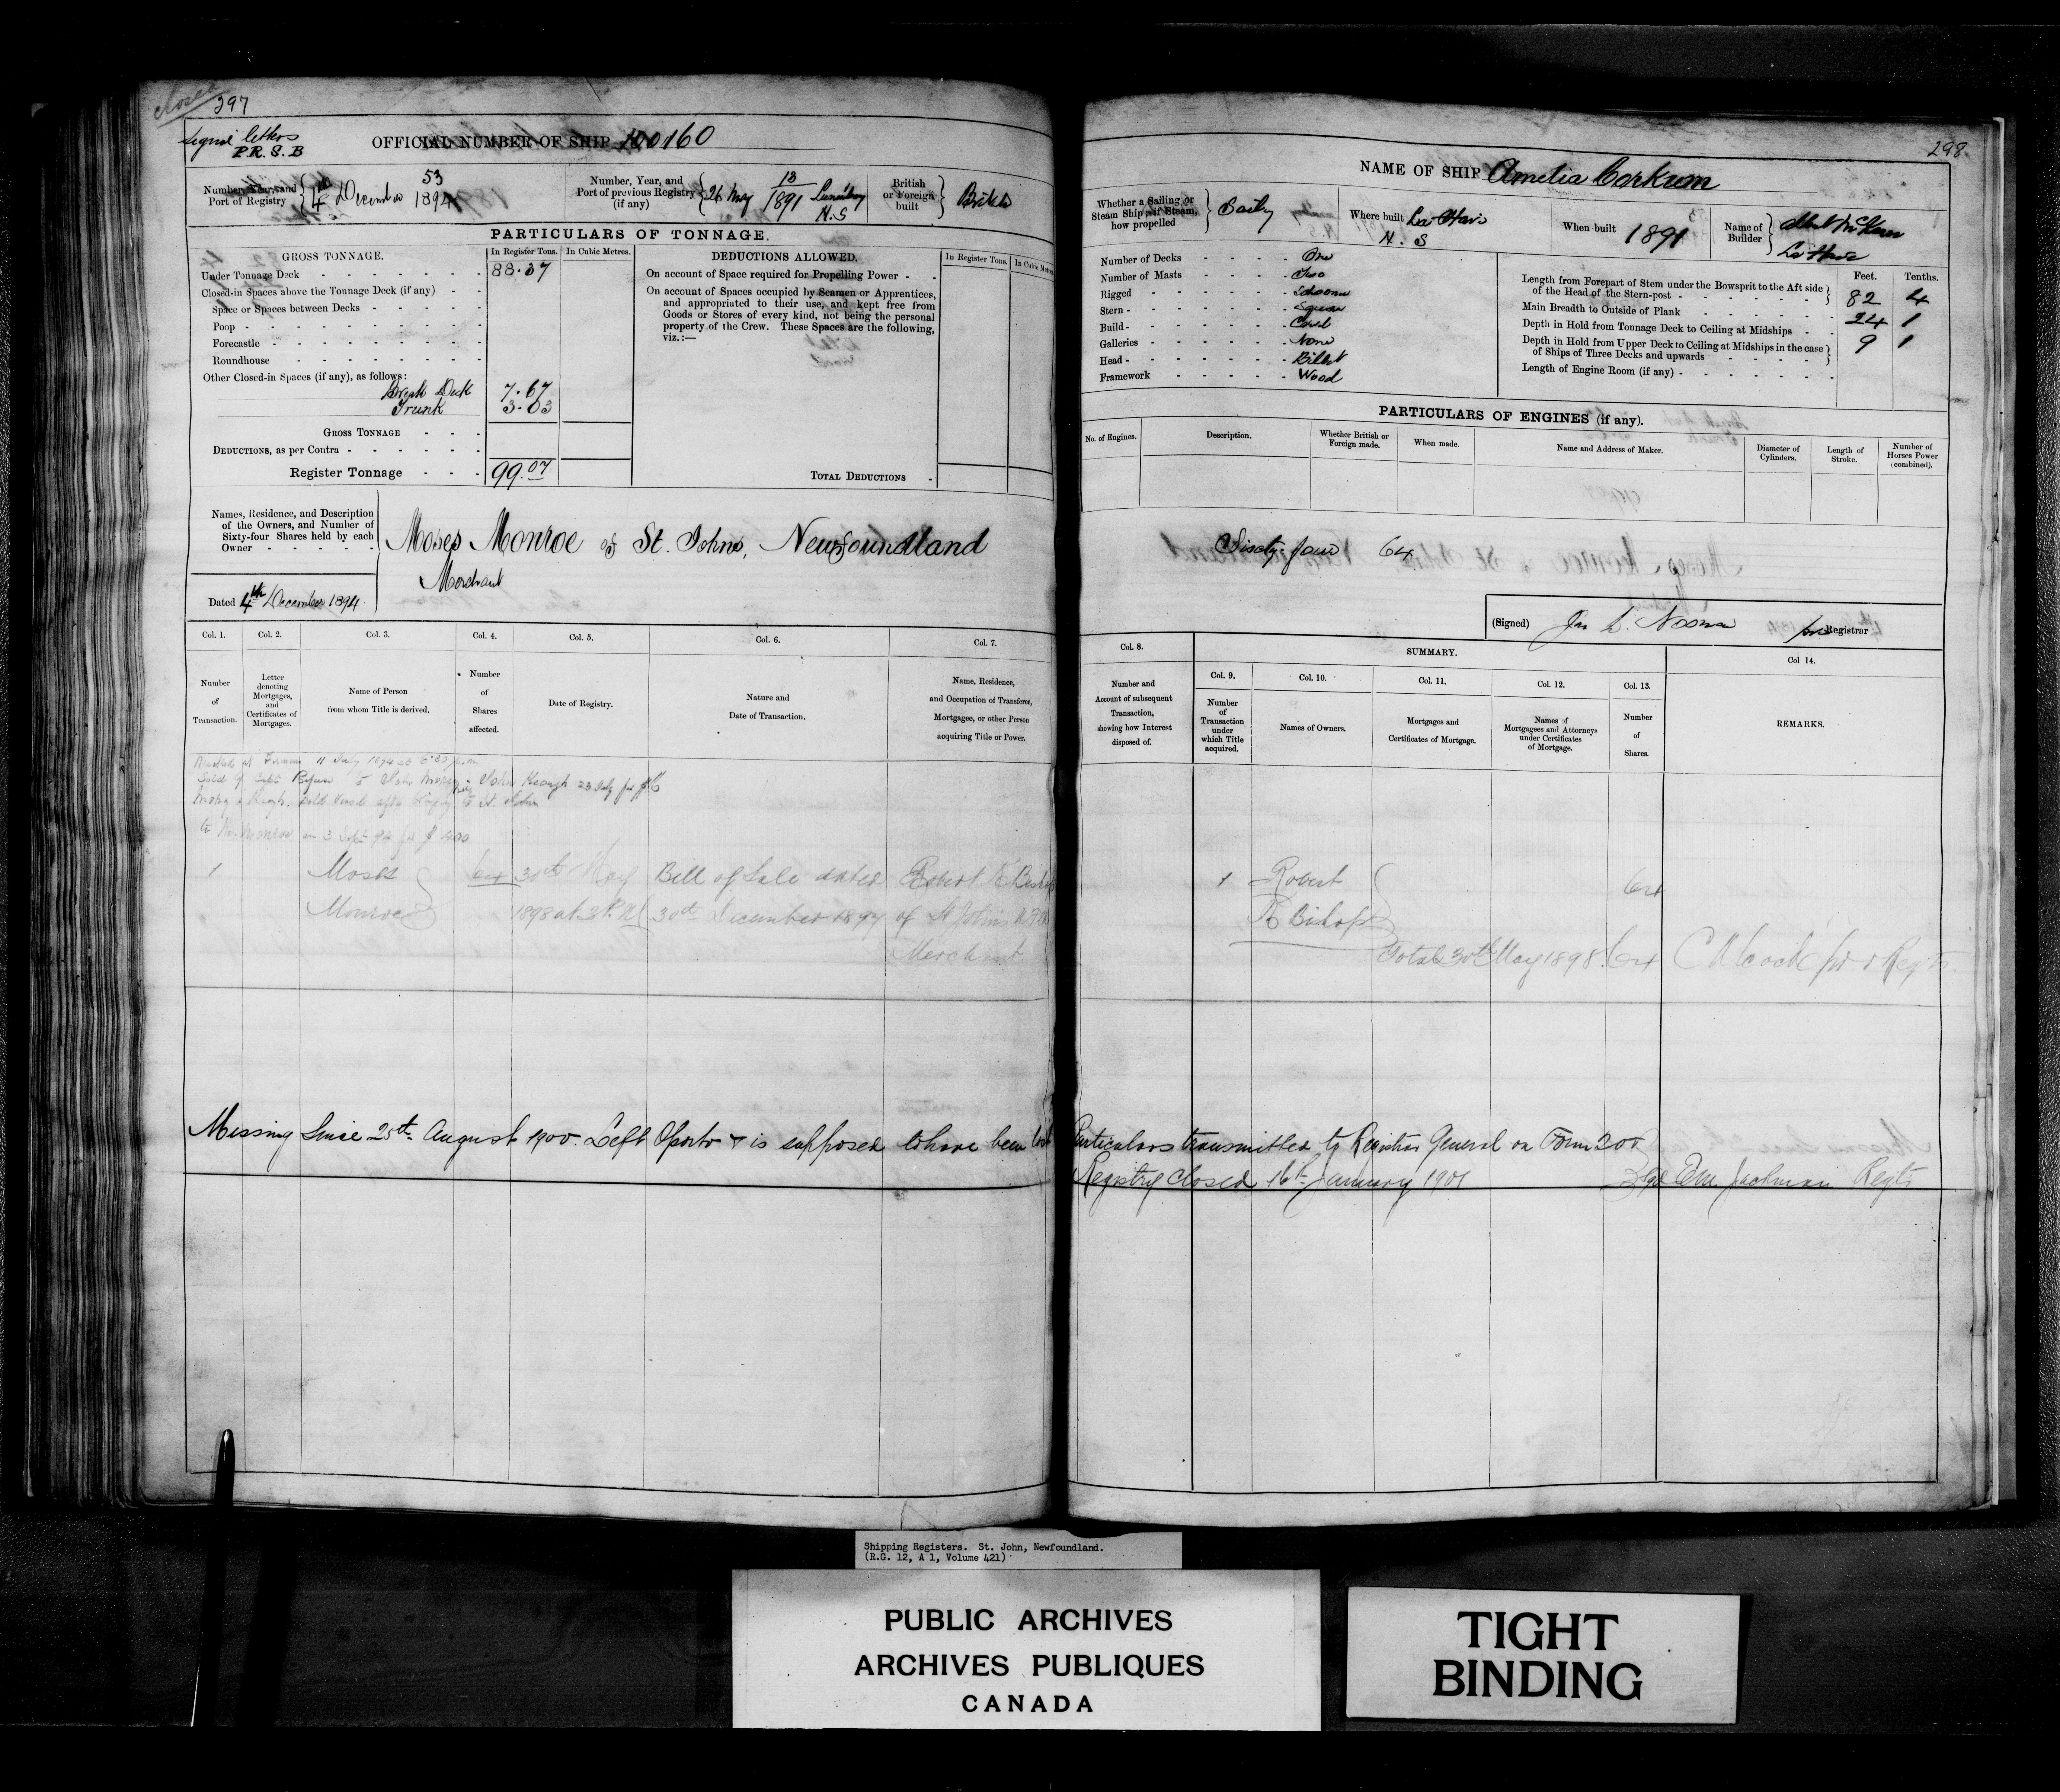 closed
297
Signal letters
P.R.S.B
OFFICIAL NUMBER OF SHIP 100160
Number, Year, and
Port of Registry
53
4th December 1894
Number, Year, and
Port of previous Registry
(if any)
13
26 May 1891 Lunenburg
N.S
British
or Foreign
built
British
PARTICULARS OF TONNAGE.
GROSS TONNAGE.
In Register Tons.
In Cubic Metres.
Under Tonnage Deck 88.37
Closed-in Spaces above the Tonnage Deck (if any)
Space or Spaces between Decks
Poop
Forecastle
Roundhouse
Other Closed-in Spaces (if any), as follows:
Break Deck 7.67
Trunk 3.03
GROSS TONNAGE
DEDUCTIONS, as per Contra
Register Tonnage 99.07
DEDUCTIONS ALLOWED.
In Register Tons.
In Cubic Metres.
On account of Space required for Propelling Power
On account of Spaces occupied by Seamen or Apprentices,
and appropriated to their use, and kept free from
Goods or Stores of every kind, not being the personal
property of the Crew. These Spaces are the following,
viz.:—
TOTAL DEDUCTIONS
Names, Residence, and Description
of the Owners, and Number of
Sixty-four Shares held by each
Owner
Dated 4th December 1894
Moses Monroe of St. Johns, Newfoundland
Merchant
Col. 1. Col. 2. Col. 3. Col. 4. Col. 5. Col. 6. Col. 7.
Number
of
Transaction.
Letter
denoting
Mortgages,
and
Certificates of
Mortgages.
Name of Person
from whom Title is derived.
Number
of
Shares
affected.
Date of Registry.
Nature and
Date of Transaction.
Name, Residence,
and Occupation of Transferee,
Mortgagee, or other Person
acquiring Title or Power.
11 July 1894
Sold by Capt to John & John Keough 23 July for
sold vessel after bringing to St. John
to M. Monroe on 3 Sept 94 for $ 400
1 Moses 64 30th May Bill of Sale dated Robert K Bishop
Monroe 1898 at 3 P.M 30th December 1897 of St Johns
Merchant
Missing Since 25th August 1900. Left Oporto & is supposed to have been lost
298
NAME OF SHIP Amelia Corkum
Whether a Sailing or
Steam Ship; if Steam,
how propelled
Sailing
Where built La Have
N. S
When built 1891
Name of
Builder
La Have
Number of Decks One
Number of Masts Two
Rigged Schooner
Stern Square
Build Carvel
Galleries None
Head Billet
Framework Wood
Feet. Tenths.
Length from Forepart of Stem under the Bowsprit to the Aft side
of the Head of the Stern-post 82 4
Main Breadth to Outside of Plank 24 1
Depth in Hold from Tonnage Deck to Ceiling at Midships 9 1
Depth in Hold from Upper Deck to Ceiling at Midships in the case
of Ships of Three Decks and upwards
Length of Engine Room (if any)
PARTICULARS OF ENGINES (if any).
No. of Engines.
Description.
Whether British or
Foreign made.
When made.
Name and Address of Maker.
Diameter of
Cylinders.
Length of
Stroke.
Number of
Horses Power
(combined).
Sixty-four 64
(Signed) Jas L. Noonan for Registrar
Col. 8.
SUMMARY.
Col. 9. Col. 10. Col. 11. Col. 12. Col. 13. Col 14.
Number and
Account of subsequent
Transaction,
showing how Interest
disposed of.
Number
of
Transaction
under
which Title
acquired.
Names of Owners.
Mortgages and
Certificates of Mortgage.
Names of
Mortgagees and Attorneys
under Certificates
of Mortgage.
Number
of
Shares.
REMARKS.
1 Robert 64
K Bishop
Total 30th May 1898 64
Particulars transmitted to Registrar General on Form 20
Registry Closed 16th January 1901 Sgd E M Jackman Regtr
Shipping Registers. St. John, Newfoundland.
(R.G. 12, A 1, Volume 421)
PUBLIC ARCHIVES
ARCHIVES PUBLIQUES
CANADA
TIGHT
BINDING